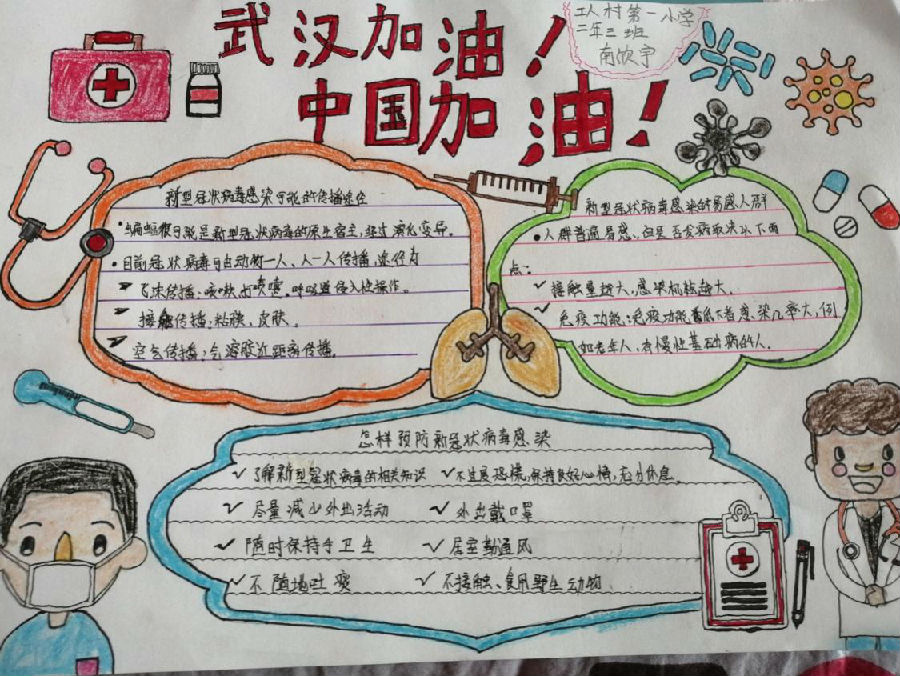 武汉加油！
中国加油！
工人村第一小学
二年三班
新型冠状病毒感染可能的传播途径
新型冠状病毒的原生宿主,经过演化变异。
目前冠状病毒可由动物一人、人一人传播,途径有
飞沫传播、咳嗽,打喷嚏,呼吸道侵入性操作。
接触传播,粘膜,皮肤。
空气传播,气溶胶近距离传播。
新型冠状病毒感染的易感人群
人群普遍易感、但是否发病取决以下两
点:
接触量越大,感染机核越大。
免疫功能:免疫功能着低下者感染几率大,例
如老年人,有慢性基础病的人。
怎样预防新冠状病毒感染
了解新型冠状病毒的相关知识
不过度恐慌,保持良好心情,充分休息。
尽量减少外出活动
外出戴口罩
随时保持手卫生
居室勤通风
不随地吐痰
不接触、食用野生动物.